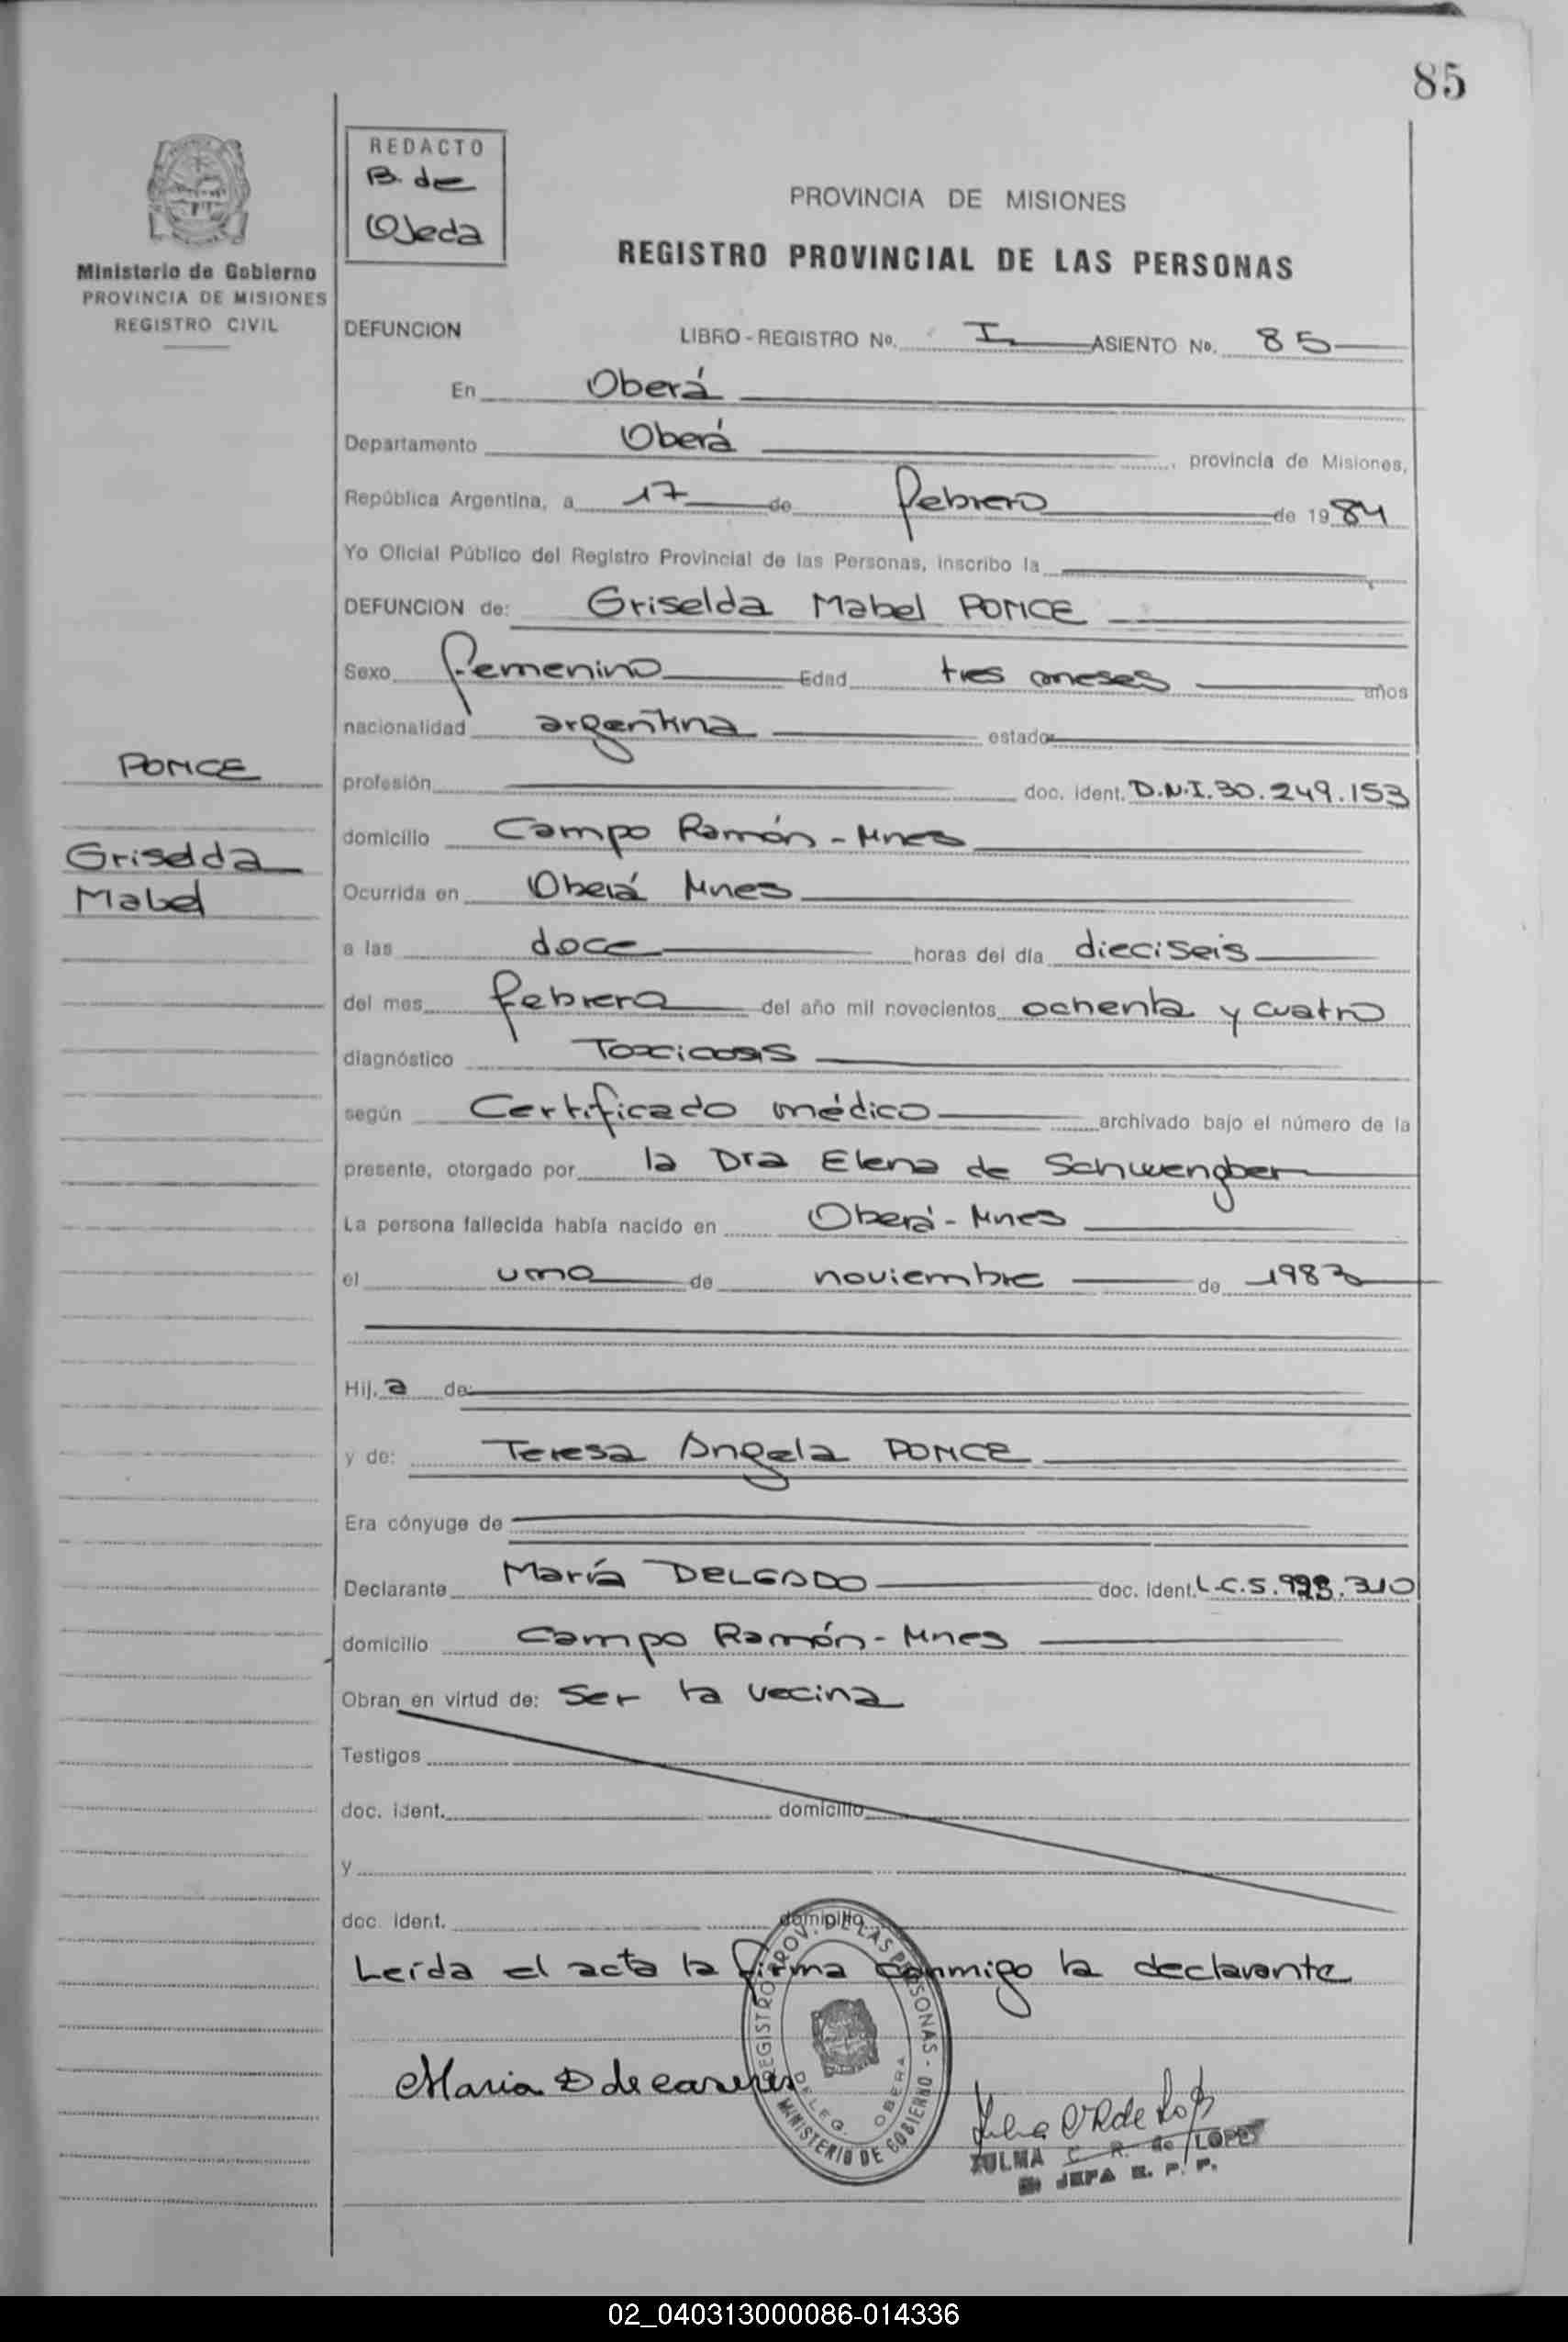 85
REDACTO
B. de
Ojeda
Ministerio de Gobierno
PROVINCIA DE MISIONES
REGISTRO CIVIL
PROVINCIA DE MISIONES
REGISTRO PROVINCIAL DE LAS PERSONAS
DEFUNCION LIBRO - REGISTRO Nº. I ASIENTO Nº. 85
En Oberá
Departamento Oberá, provincia de Misiones,
República Argentina, a 17 de febrero de 1984
Yo Oficial Público del Registro Provincial de las Personas, inscribo la
DEFUNCION de: Griselda Mabel PONCE
Sexo femenino Edad tres meses años
nacionalidad argentina estado
PONCE
Griselda
Mabel
profesión doc. ident. D.N.I. 30.249.153
domicilio Campo Ramón - Mnes
Ocurrida en Oberá Mnes
a las doce horas del día dieciseis
del mes febrero del año mil novecientos ochenta y cuatro
diagnóstico Toxicosis
según Certificado médico archivado bajo el número de la
presente, otorgado por la Dra Elena de Schwengber
La persona fallecida había nacido en Oberá - Mnes
el uno de noviembre de 1983
Hij. a de:
y de: Teresa Angela PONCE
Era cónyuge de
Declarante María DELGADO doc. ident. L.C.5. .310
domicilio Campo Ramón - Mnes
Obran en virtud de: Ser la vecina
Testigos
doc. ident. domicilio
y
doc. ident. domicilio
Leída el acta la firma conmigo la declarante
REGISTRO PROV. DE LAS PERSONAS - MINISTERIO DE GOBIERNO
DELEG. OBERA
Maria D de
ZULMA C. R. de LOPEZ
JEFA R. P. P.
02_040313000086-014336